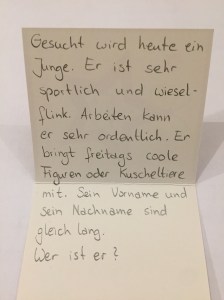 Gesucht wird heute ein
Junge. Er ist sehr
sportlich und wiesel-
flink. Arbeiten kann
er sehr ordentlich. Er
bringt freitags coole
Figuren oder Kuscheltiere
mit. Sein Vorname und
sein Nachname sind
gleich lang.
Wer ist er?